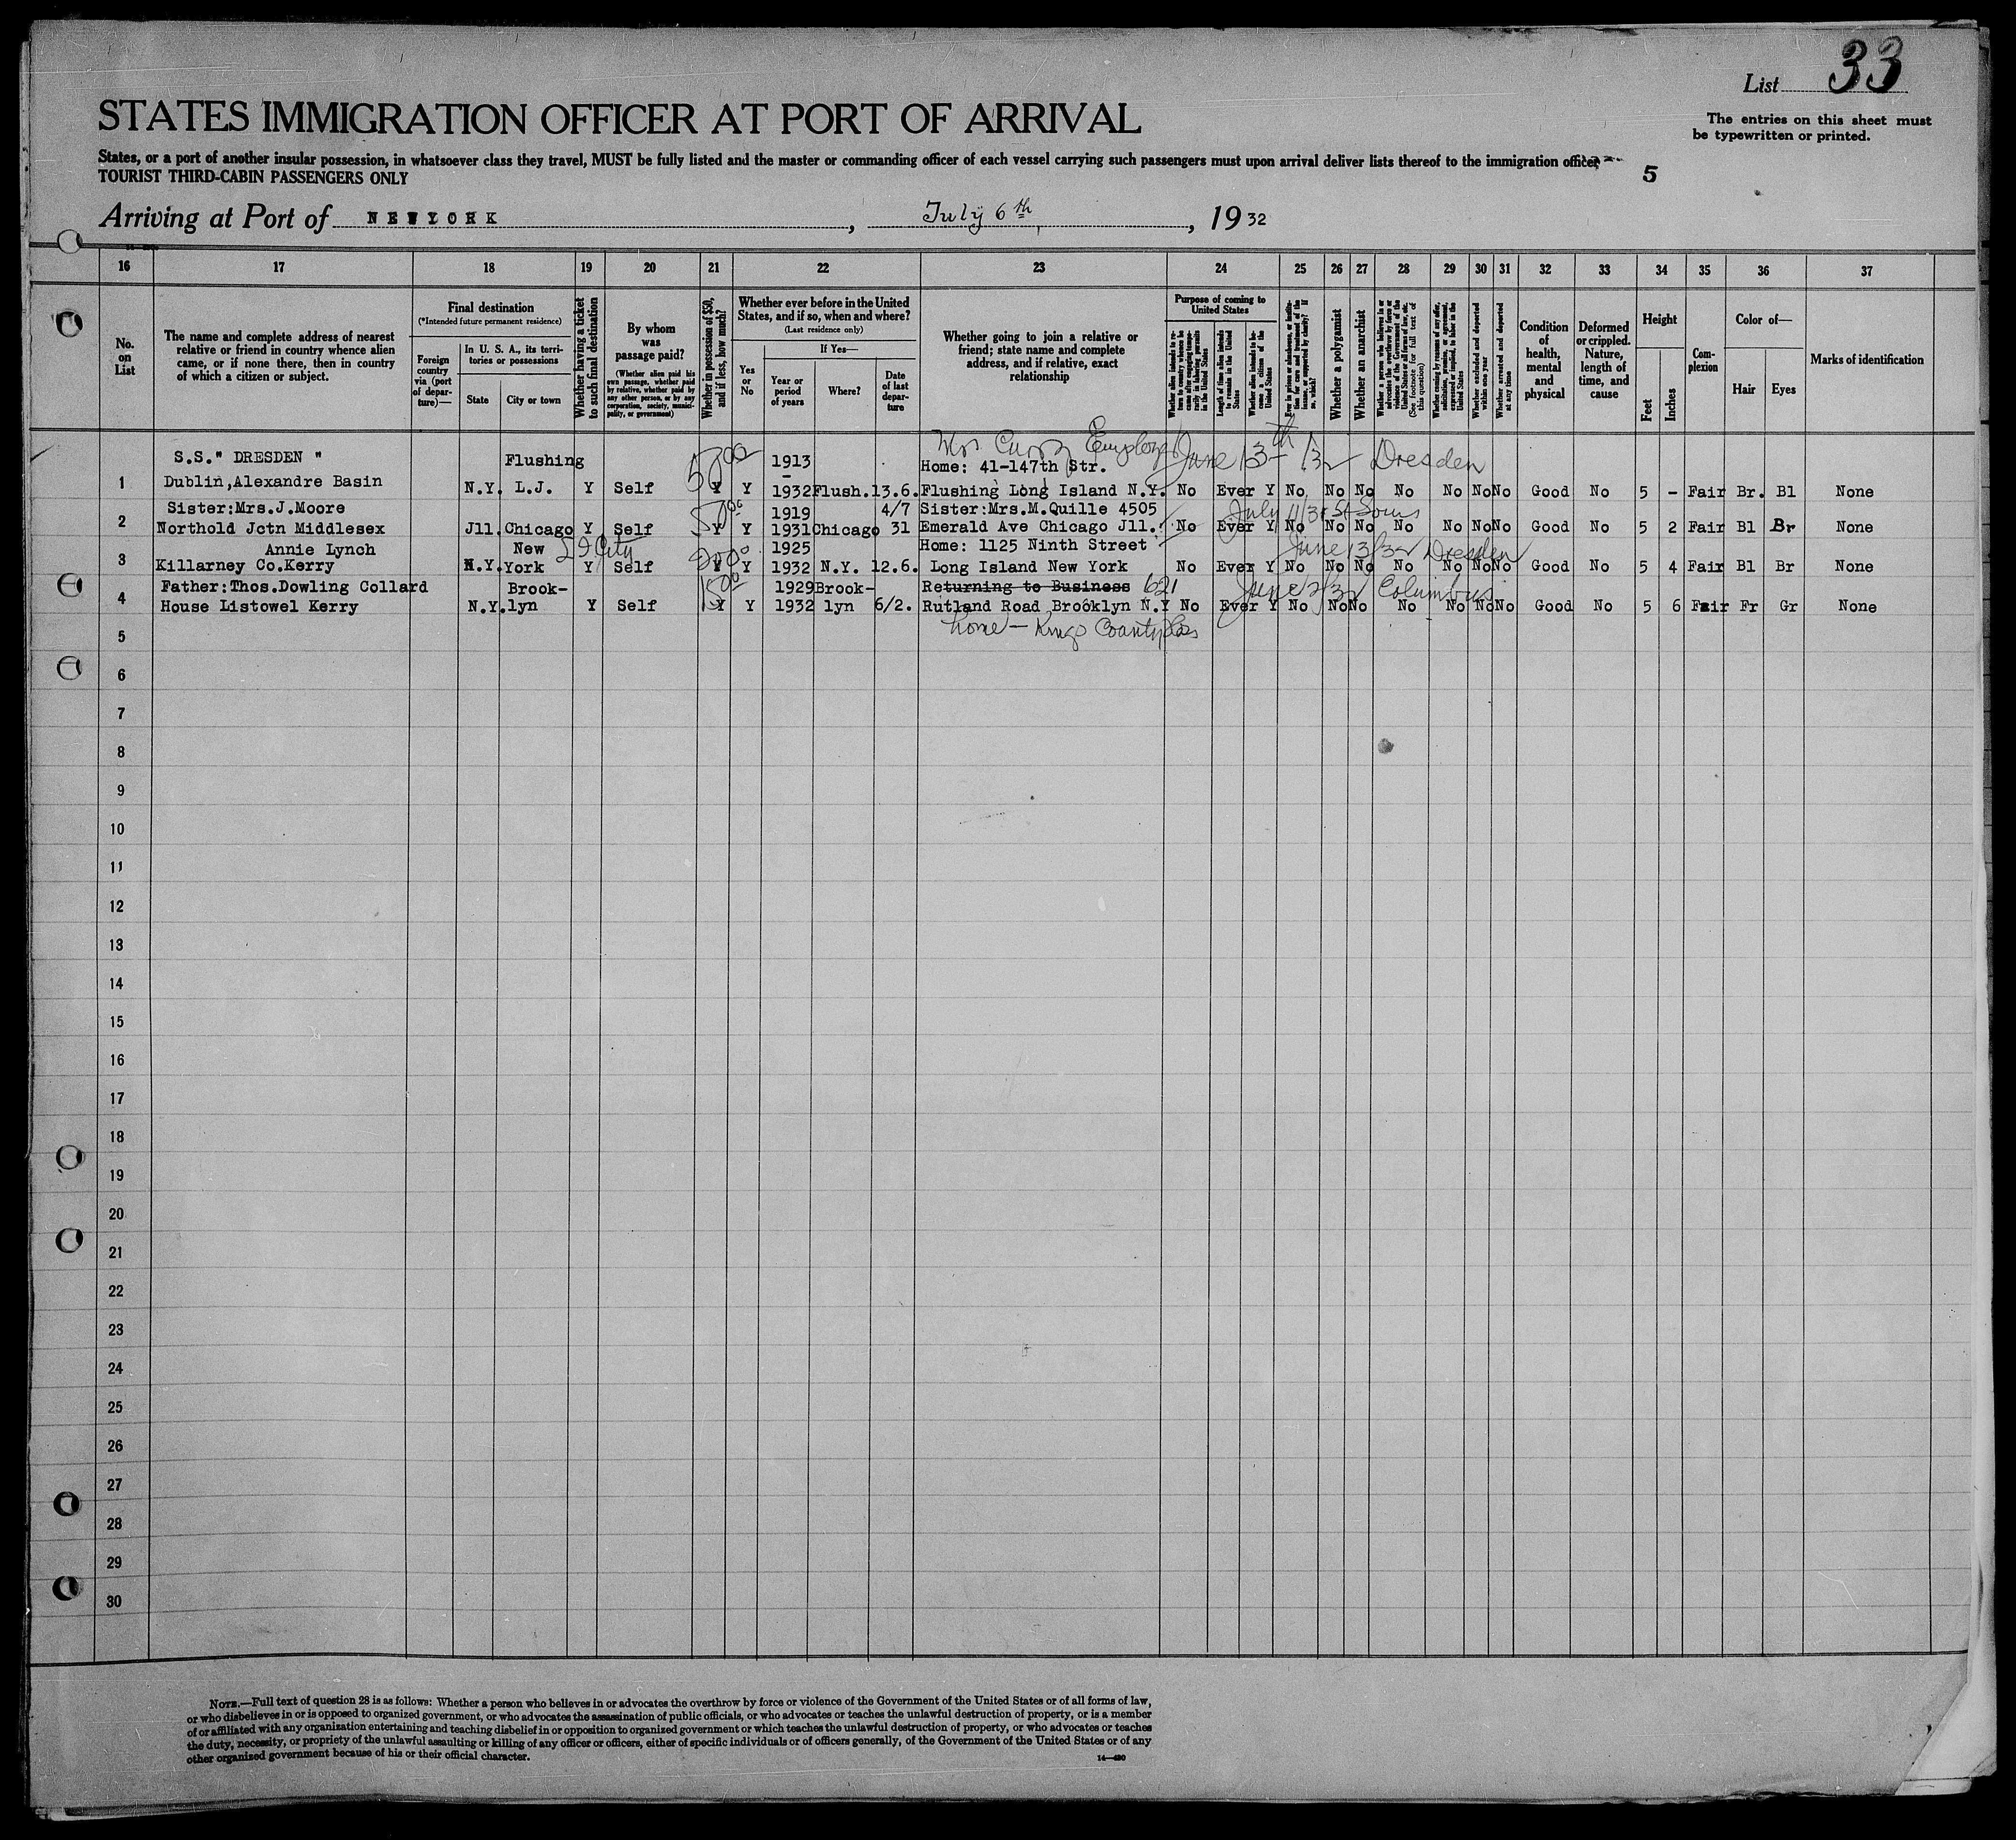 List 33
STATES IMMIGRATION OFFICER AT PORT OF ARRIVAL
The entries on this sheet must
be typewritten or printed.
States, or a port of another insular possession, in whatsoever class they travel, MUST be fully listed and the master or commanding officer of each vessel carrying such passengers must upon arrival deliver lists thereof to the immigration officer
TOURIST THIRD-CABIN PASSENGERS ONLY
5
Arriving at Port of NEWYORK, July 6th, 1932
16 17 18 19 20 21 22 23 24 25 26 27 28 29 30 31 32 33 34 35 36 37
No.
on
List
The name and complete address of nearest
relative or friend in country whence alien
came, or if none there, then in country
of which a citizen or subject.
Final destination
(*Intended future permanent residence)
Foreign
country
via (port
of depar-
ture)—
In U. S. A., its terri-
tories or possessions
State
City or town
Whether having a ticket
to such final destination
By whom
was
passage paid?
(Whether alien paid his
own passage, whether paid
by relative, whether paid by
any other person, or by any
corporation, society, munici-
pality, or government)
Whether in possession of $50,
and if less, how much?
Whether ever before in the United
States, and if so, when and where?
(Last residence only)
Yes
or
No
If Yes—
Year or
period
of years
Where?
Date
of last
depar-
ture
Whether going to join a relative or
friend; state name and complete
address, and if relative, exact
relationship
Purpose of coming to
United States
Whether alien intends to re-
turn to country whence he
came after engaging tempo-
rarily in laboring pursuits
in the United States
Length of time alien intends
to remain in the United
States
Whether alien intends to be-
come a citizen of the
United States
Ever in prison or almshouse, or institu-
tion for care and treatment of the
insane, or supported by charity? If
so, which?
Whether a polygamist
Whether an anarchist
Whether a person who believes in or
advocates the overthrow by force or
violence of the Government of the
United States or all forms of law, etc.
(See footnote for full text of
this question)
Whether coming by reasons of any offer,
solicitation, promise, or agreement,
expressed or implied, to labor in the
United States
Whether excluded and deported
within one year
Whether arrested and deported
at any time
Condition
of
health,
mental
and
physical
Deformed
or crippled.
Nature,
length of
time, and
cause
Height
Feet
Inches
Com-
plexion
Color of—
Hair
Eyes
Marks of identification
S.S." DRESDEN " Flushing 5000 1913 Mrs Curry Employer June 13th 32 Dresden
Home: 41-147th Str.
1 Dublin,Alexandre Basin N.Y. L.J. Y Self Y Y 1932 Flush. 13.6. Flushing Long Island N.Y. No Ever Y No No No No No No No Good No 5 - Fair Br. Bl None
Sister:Mrs.J.Moore 5000 1919 4/7 Sister:Mrs.M.Quille 4505 July 11/31 St Louis
2 Northold Jctn Middlesex Jll. Chicago Y Self Y Y 1931 Chicago 31 Emerald Ave Chicago Jll. No Ever Y No No No No No No No Good No 5 2 Fair Bl Br None
Annie Lynch New L I City 2000 1925 Home: 1125 Ninth Street June 13/32 Dresden
3 Killarney Co.Kerry N.Y. York Y Self Y Y 1932 N.Y. 12.6. Long Island New York No Ever Y No No No No No No No Good No 5 4 Fair Bl Br None
Father:Thos.Dowling Collard Brook- 1500 1929 Brook- Returning to Business 621 June 2/32 Columbus
4 House Listowel Kerry N.Y. lyn Y Self Y Y 1932 lyn 6/2. Rutland Road Brooklyn N.Y No Ever Y No No No No No No No Good No 5 6 Fair Fr Gr None
5 home - Kings County
6
7
8
9
10
11
12
13
14
15
16
17
18
19
20
21
22
23
24
25
26
27
28
29
30
NOTE.—Full text of question 28 is as follows: Whether a person who believes in or advocates the overthrow by force or violence of the Government of the United States or of all forms of law,
or who disbelieves in or is opposed to organized government, or who advocates the assassination of public officials, or who advocates or teaches the unlawful destruction of property, or is a member
of or affiliated with any organization entertaining and teaching disbelief in or opposition to organized government or which teaches the unlawful destruction of property, or who advocates or teaches
the duty, necessity, or propriety of the unlawful assaulting or killing of any officer or officers, either of specific individuals or of officers generally, of the Government of the United States or of any
other organized government because of his or their official character.
14—480